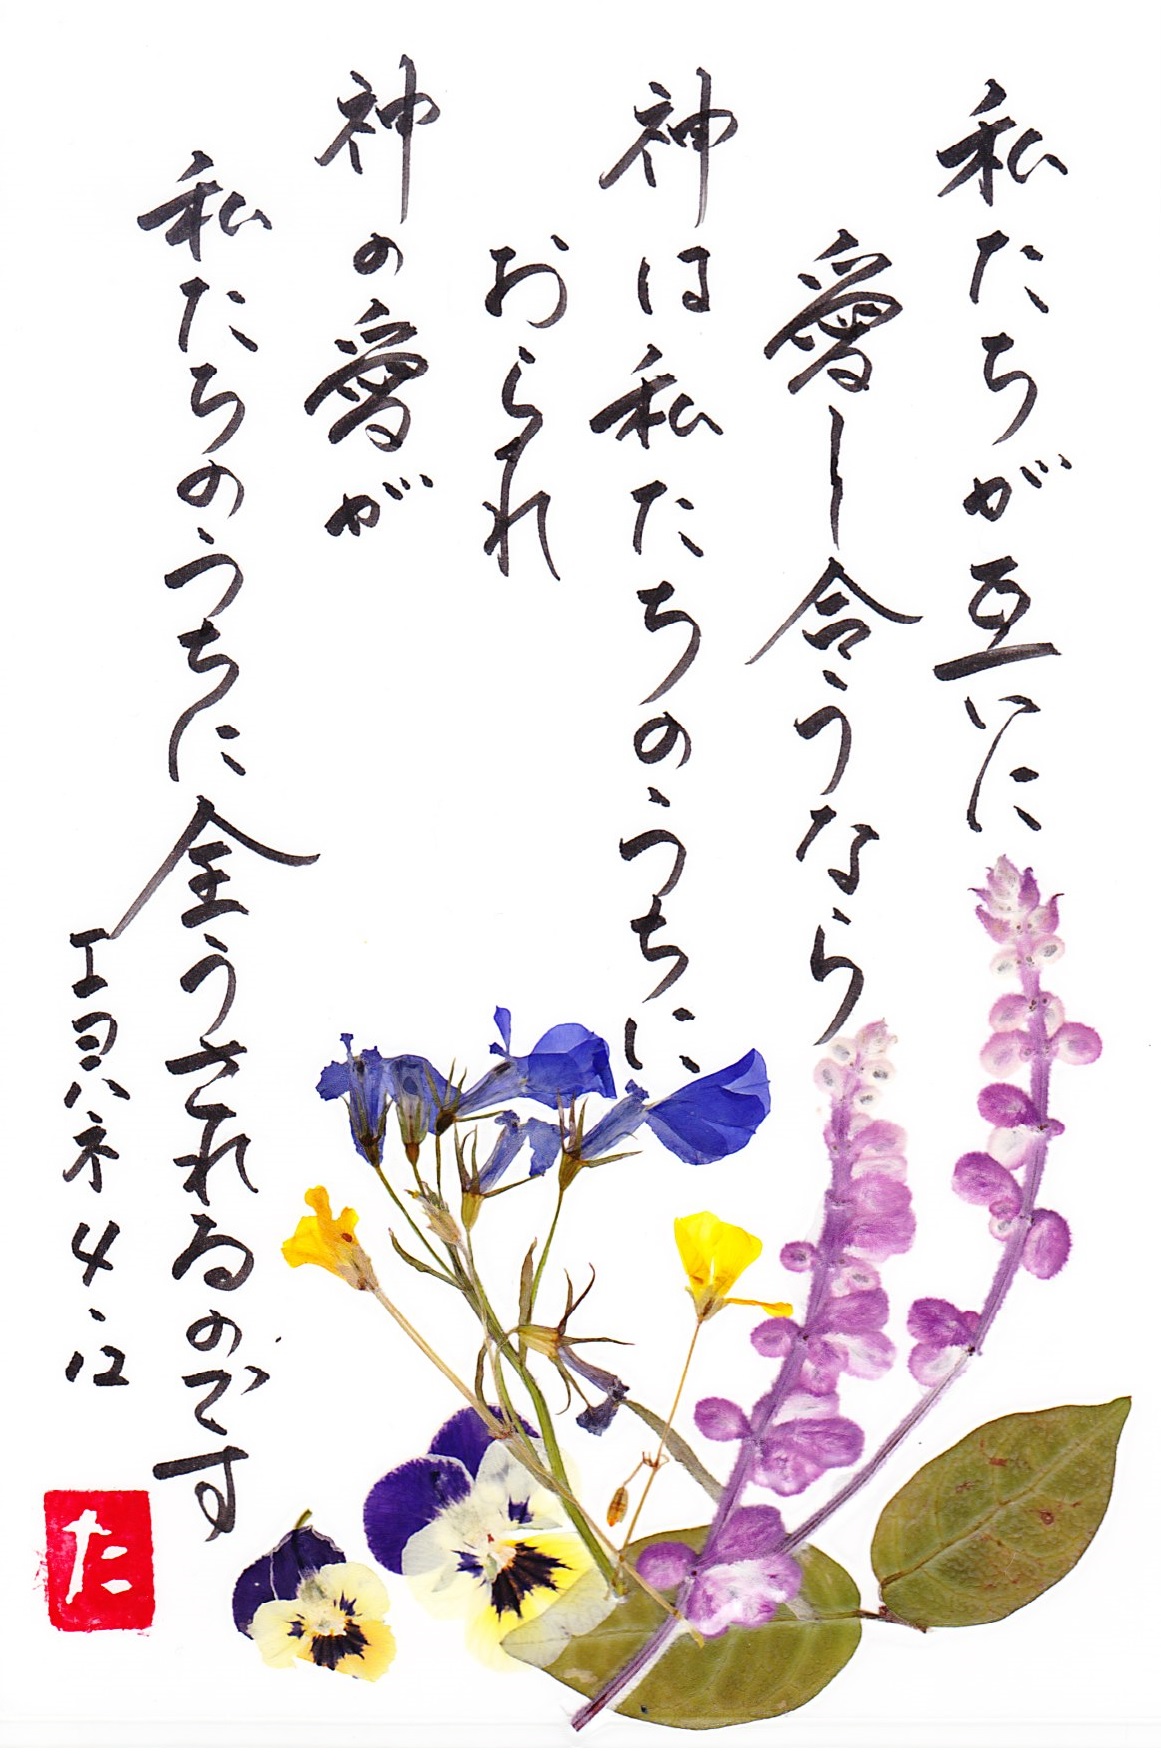 私たちが互いに
愛し合うなら
神は私たちのうちに
おられ
神の愛が
私たちのうちに全うされるのです
Iヨハネ4:12
た